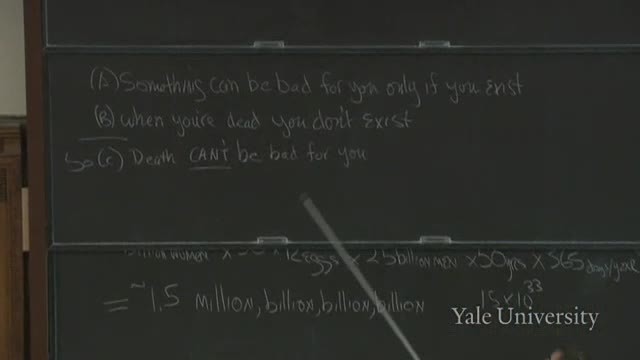 (A) Something can be bad for you only if you exist
(B) when you're dead you don't exist
So (C) Death CAN'T be bad for you
billion women × × 12 eggs × 2.5 billion men × 50 yrs × 365 days/year
= ~1.5 million, billion, billion, billion 1.5×10^33
Yale University